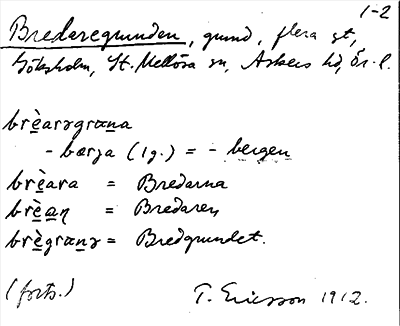 1-2
Brederegrunden, grund, flera st,
Göksholm, St. Mellösa sn, Askers hd, Ör. l.
brèarəgrɑna
- bærja (1g.) = - bergen
brèara = Bredarna
brèaɳ = Bredaren
brègrɑnə = Bredgrundet.
(forts.) T. Ericsson 1912.